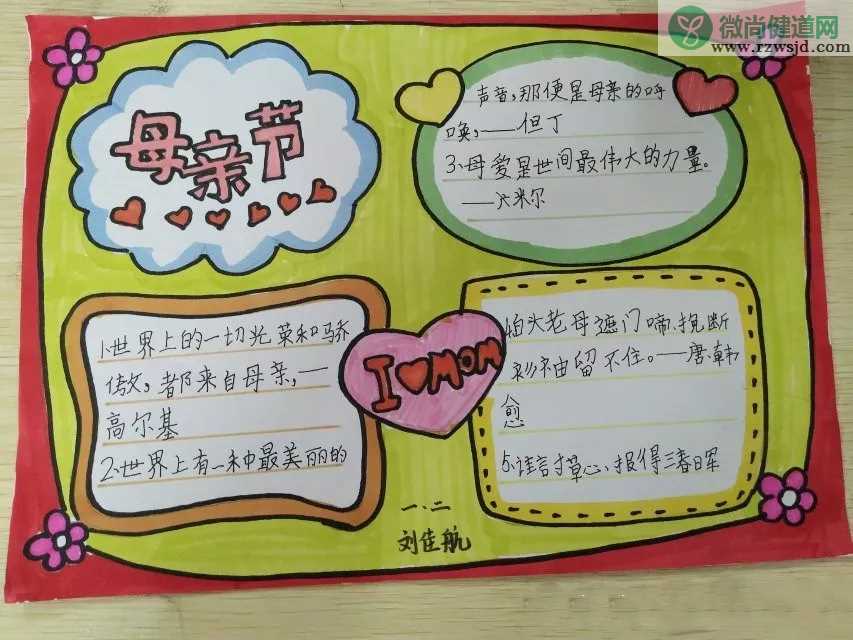 微尚健道网
www.rzwsjd.com
母亲节
1、世界上的一切光荣和骄
傲,都来自母亲,—
高尔基
2、世界上有一种最美丽的
声音,那便是母亲的呼
唤,——但丁
3、母爱是世间最伟大的力量。
——米尔
I MOM
白头老母遮门啼,挽断
衫袖留不住。——唐·韩
愈
5、谁言寸草心,报得三春日军
一.二
刘佳航